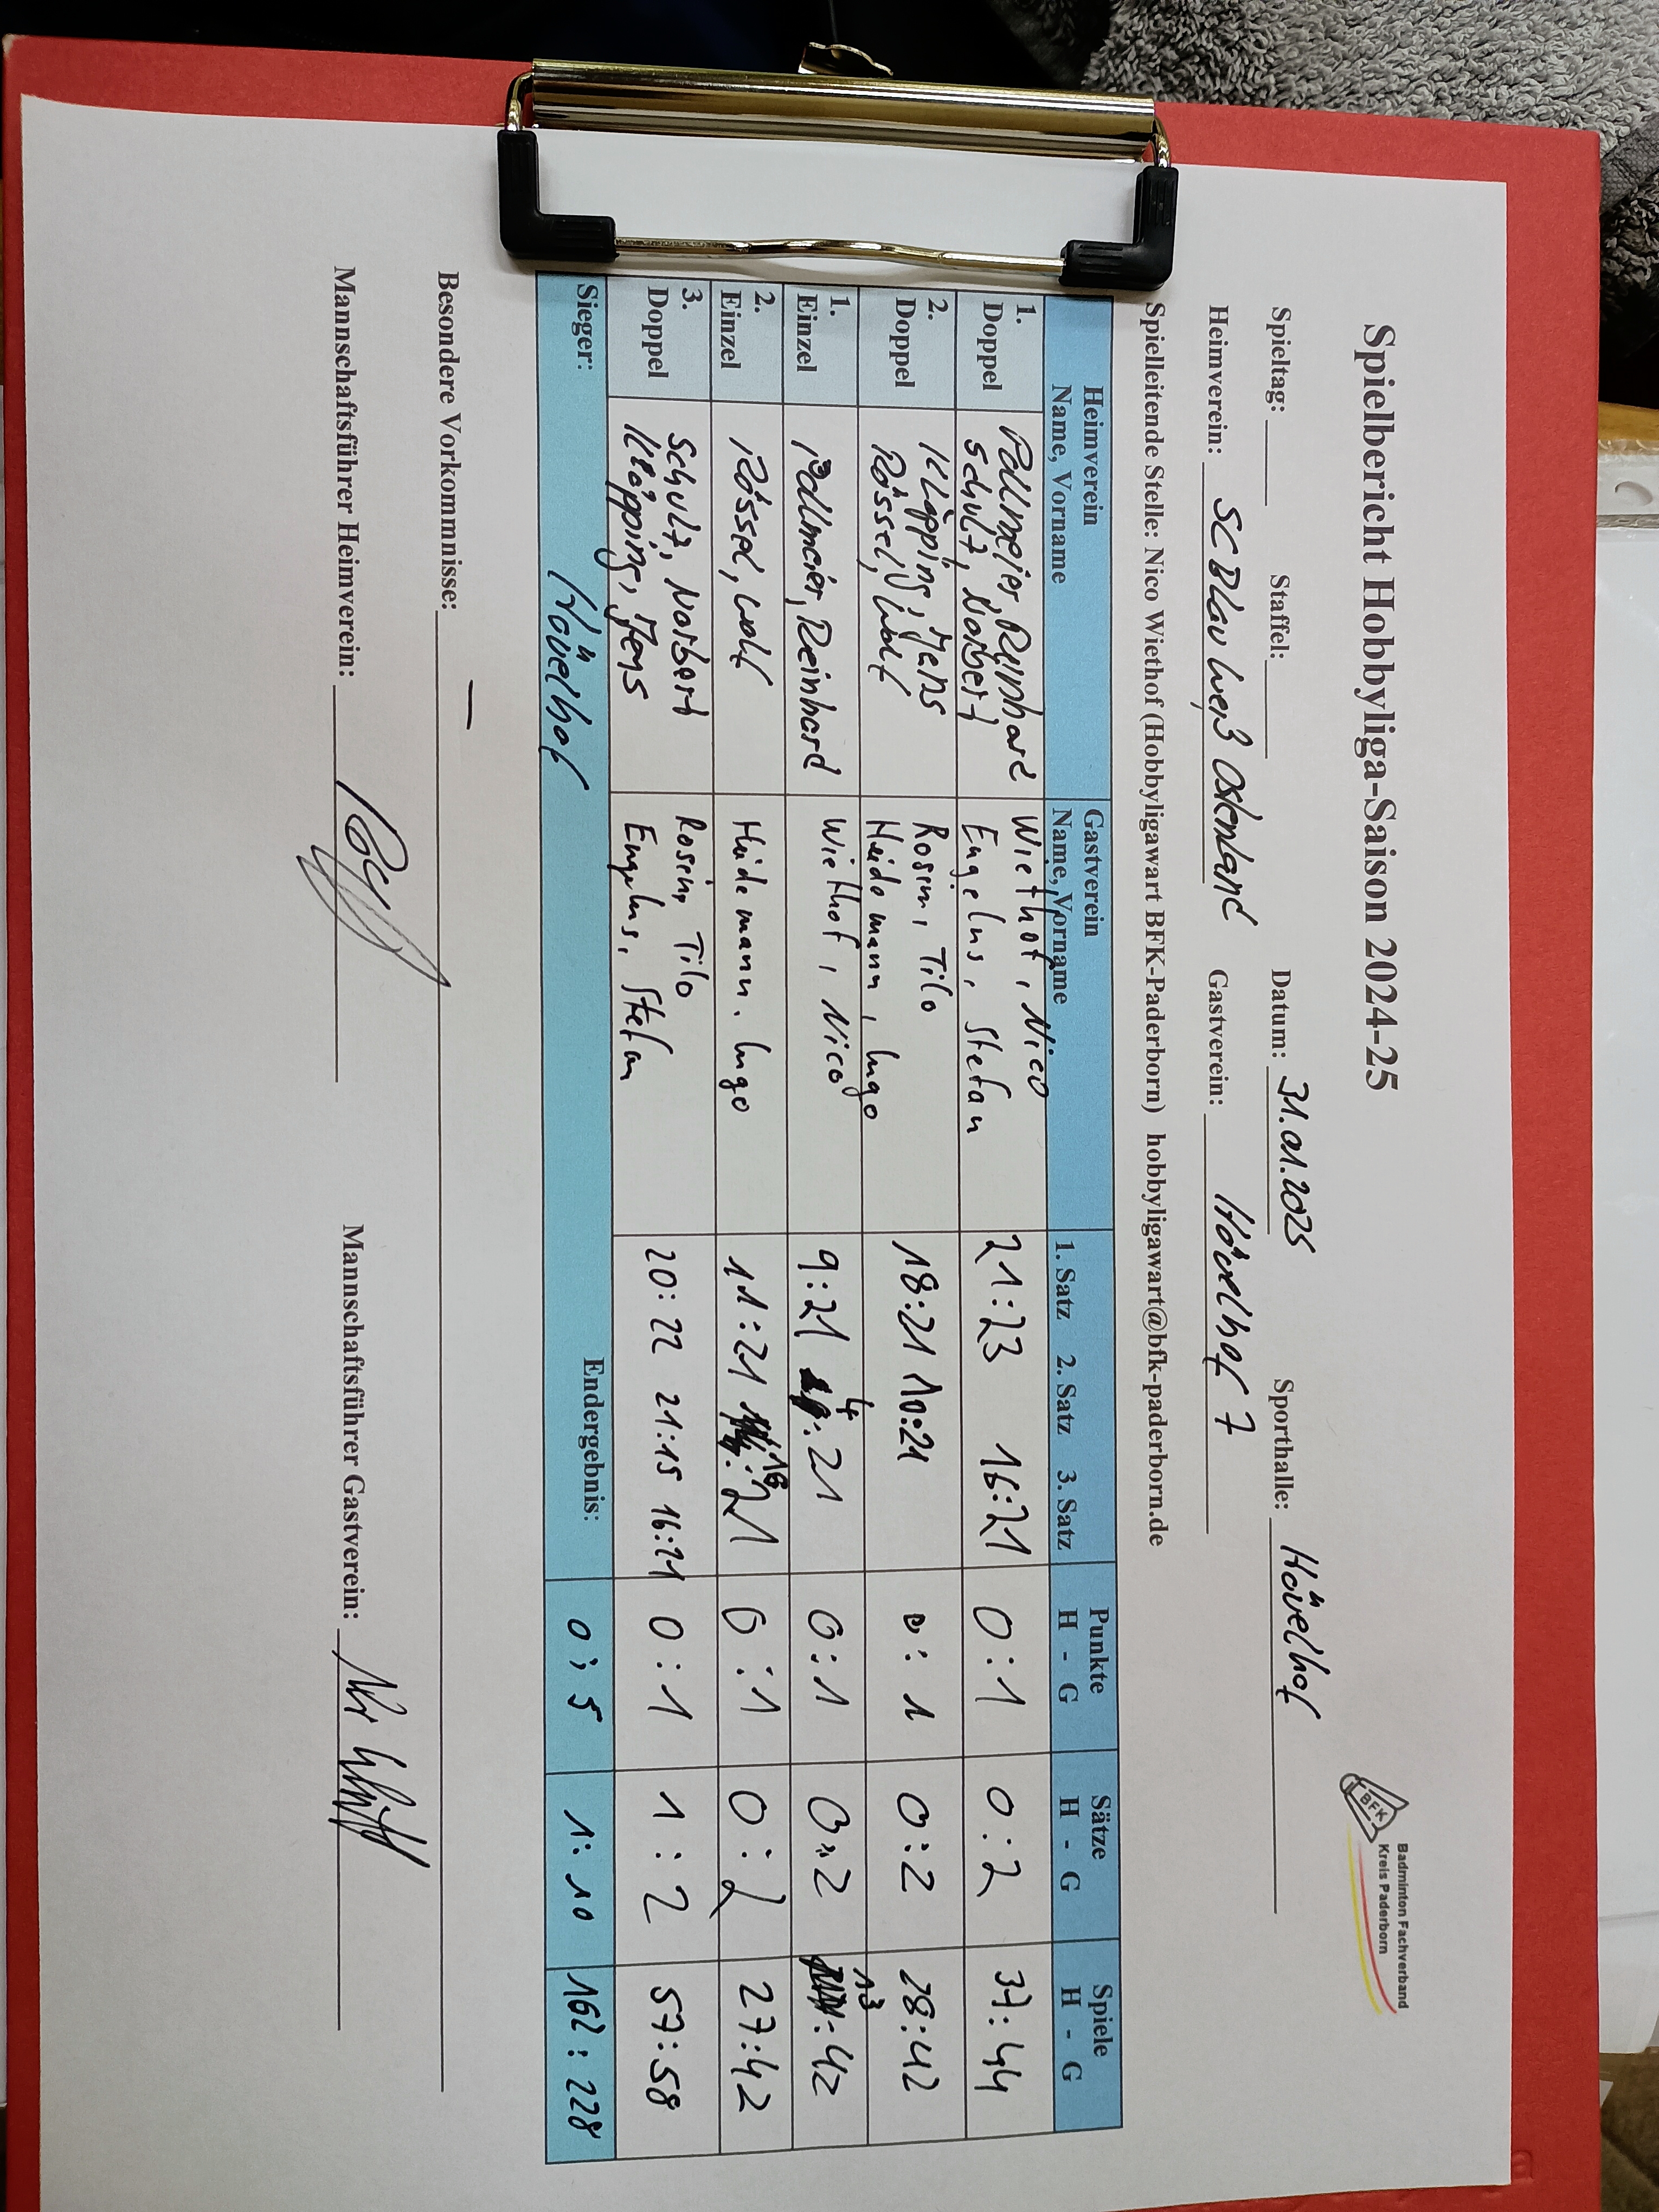 Spielbericht Hobbyliga-Saison 2024-25
BFK
Badminton Fachverband
Kreis Paderborn
Spieltag: Staffel: Datum: 31.01.2025 Sporthalle: Hövelhof
Heimverein: SC Blau Weiß Ostenland Gastverein: Hövelhof 7
Spielleitende Stelle: Nico Wiethof (Hobbyligawart BFK-Paderborn) hobbyligawart@bfk-paderborn.de
Heimverein Gastverein Punkte Sätze Spiele
Name, Vorname Name, Vorname 1. Satz 2. Satz 3. Satz H - G H - G H - G
1. Pollmeier, Reinhard Wiethof, Nico 21:23 16:21 0:1 0:2 37:44
Doppel Schulz, Norbert Engelns, Stefan
2. Kläpping, Jens Rosin, Tilo 18:21 10:21 0:1 0:2 28:42
Doppel Rössel, Wolf Heidemann, Ingo
1. Pollmeier, Reinhard Wiethof, Nico 9:21 4:21 0:1 0:2 13:42
Einzel
2. Rössel, Wolf Heidemann, Ingo 11:21 16:21 0:1 0:2 27:42
Einzel
3. Schulz, Norbert Rosin, Tilo 20:22 21:15 16:21 0:1 1:2 57:58
Doppel Kläpping, Jens Engelns, Stefan
Sieger: Hövelhof Endergebnis: 0:5 1:10 162:228
Besondere Vorkommnisse: —
Mannschaftsführer Heimverein: Mannschaftsführer Gastverein: